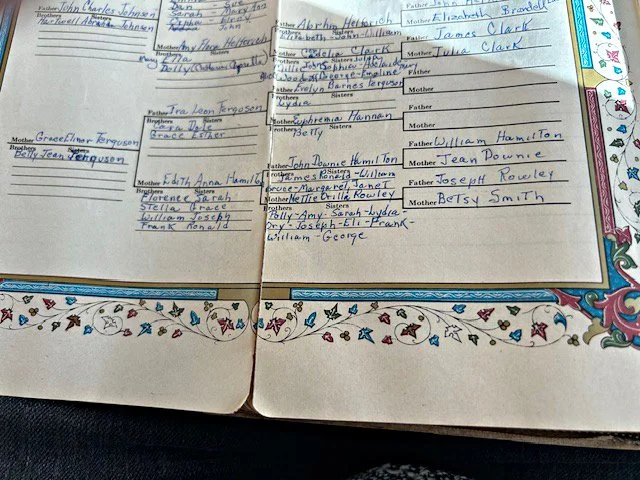 Father John Charles Johnson
Brothers Sisters
Hartwell Abraham Johnson
Mother Grace Elnor Ferguson
Brothers Sisters
Betty Jean Ferguson
Dan - Sue
Sarah - Mary Ann
John
Mother Amy Helfrich
Brothers Sisters
Etta
Dolly
Father Ira Leon Ferguson
Brothers Sisters
Cara Dale
Grace Esther
Mother Edith Anna Hamilton
Brothers Sisters
Florence Sarah
Stella Grace
William Joseph
Frank Ronald
Father Abrhm Helfrich
Brothers Sisters
Elizabeth - John - William
Mother Cordelia Clark
Brothers Sisters
Sophia - Adelaide
George - Emeline
Father Evelyn Barnes Ferguson
Brothers Sisters
Lydia
Mother Euphremia Hannan
Brothers Sisters
Betty
Father John Downie Hamilton
Brothers Sisters
James Ronald - William
Bruce - Margaret, Janet
Mother Nettie Orilla Rowley
Brothers Sisters
Polly - Amy - Sarah - Lydia -
Ory - Joseph - Eli - Frank -
William - George
Father John
Mother Elizabeth
Father James Clark
Mother Julia Clark
Father
Mother
Father
Mother
Father William Hamilton
Mother Jean Downie
Father Joseph Rowley
Mother Betsy Smith